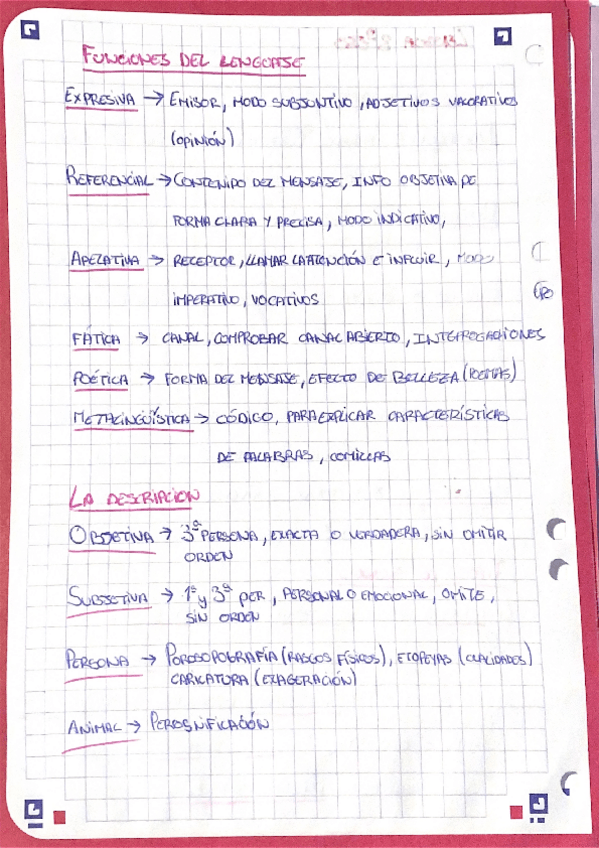 FUNCIONES DEL LENGUAJE
EXPRESIVA → EMISOR, MODO SUBJUNTIVO, ADJETIVOS VALORATIVOS
(OPINIÓN)
REFERENCIAL → CONTENIDO DEL MENSAJE, INFO OBJETIVA DE
FORMA CLARA Y PRECISA, MODO INDICATIVO,
APELATIVA → RECEPTOR, LLAMAR LA ATENCIÓN E INFLUIR, MODO
IMPERATIVO, VOCATIVOS
FÁTICA → CANAL, COMPROBAR CANAL ABIERTO, INTERROGACIONES
POÉTICA → FORMA DEL MENSAJE, EFECTO DE BELLEZA (POEMAS)
METALINGÜÍSTICA → CÓDIGO, PARA EXPLICAR CARACTERÍSTICAS
DE PALABRAS, COMILLAS
LA DESCRIPCION
OBJETIVA → 3ª PERSONA, EXACTA O VERDADERA, SIN OMITIR
ORDEN
SUBJETIVA → 1ª y 3ª PER, PERSONAL O EMOCIONAL, OMITE,
SIN ORDEN
PERSONA → POROSOPOGRAFÍA (RASGOS FÍSICOS), ETOPEYAS (CUALIDADES)
CARICATURA (EXAGERACIÓN)
ANIMAL → PEROSNIFICACIÓN